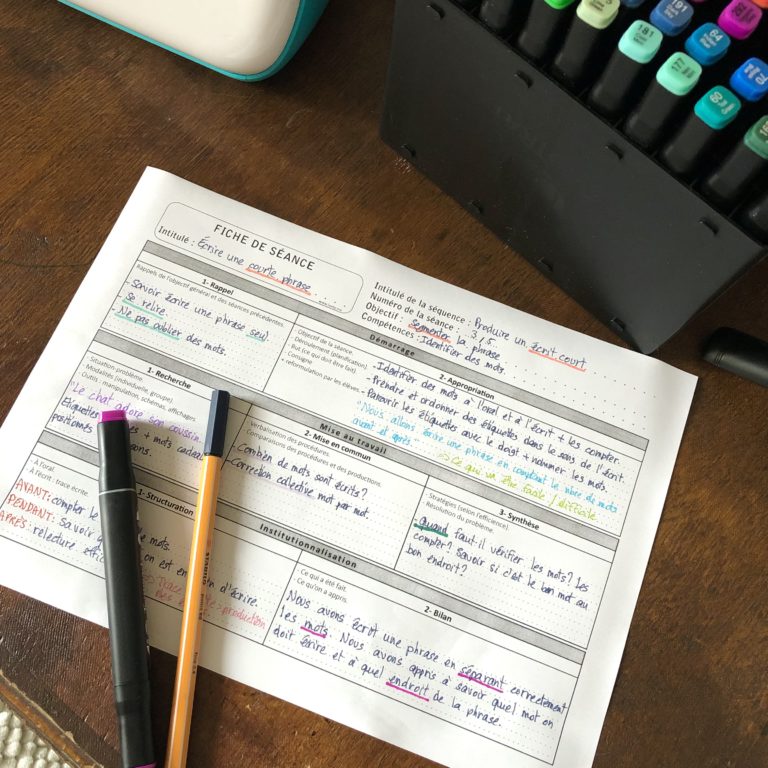 FICHE DE SÉANCE
Intitulé : Écrire une courte phrase
Intitulé de la séquence : Produire un écrit court
Numéro de la séance : 3/5
Objectif : Segmenter la phrase
Compétences : Identifier des mots.
Démarrage
1- Rappel
Rappels de l'objectif général et des séances précédentes.
- Savoir écrire une phrase seul,
se relire.
- Ne pas oublier des mots.
2- Appropriation
- Objectif de la séance.
- Déroulement (planification)
- But (ce qui doit être fait)
- Consigne
+ reformulation par les élèves
- Identifier des mots à l'oral et à l'écrit + les compter.
- Prendre et ordonner des étiquettes dans le sens de l'écrit.
- Parcourir les étiquettes avec le doigt + nommer les mots.
"Nous allons écrire une phrase en comptant le nbre de mots
avant et après"
=> Ce qui va être facile / difficile
Mise au travail
1- Recherche
- Situation-problème.
- Modalités (individuelle, groupe).
- Outils : manipulation, schémas, affichages
"Le chat adore son coussin"
Étiquettes + mots
positionnés
2- Mise en commun
- Verbalisation des procédures.
- Comparaisons des procédures et des productions.
- Combien de mots sont écrits ?
- Correction collective mot par mot
3- Synthèse
- Stratégies (selon l'efficience).
- Résolution du problème.
quand faut-il vérifier les mots ? Les
compter ? Savoir si c'est le bon mot au
bon endroit ?
Institutionnalisation
1- Structuration
- À l'oral.
- À l'écrit : trace écrite.
AVANT : compter le de mots.
PENDANT : savoir on est en d'écrire.
APRÈS : relecture
production
2- Bilan
- Ce qui a été fait.
- Ce qu'on a appris.
Nous avons écrit une phrase en séparant correctement
les mots. Nous avons appris à savoir quel mot on
doit écrire et à quel endroit de la phrase.
STABILO
181
191
64
177